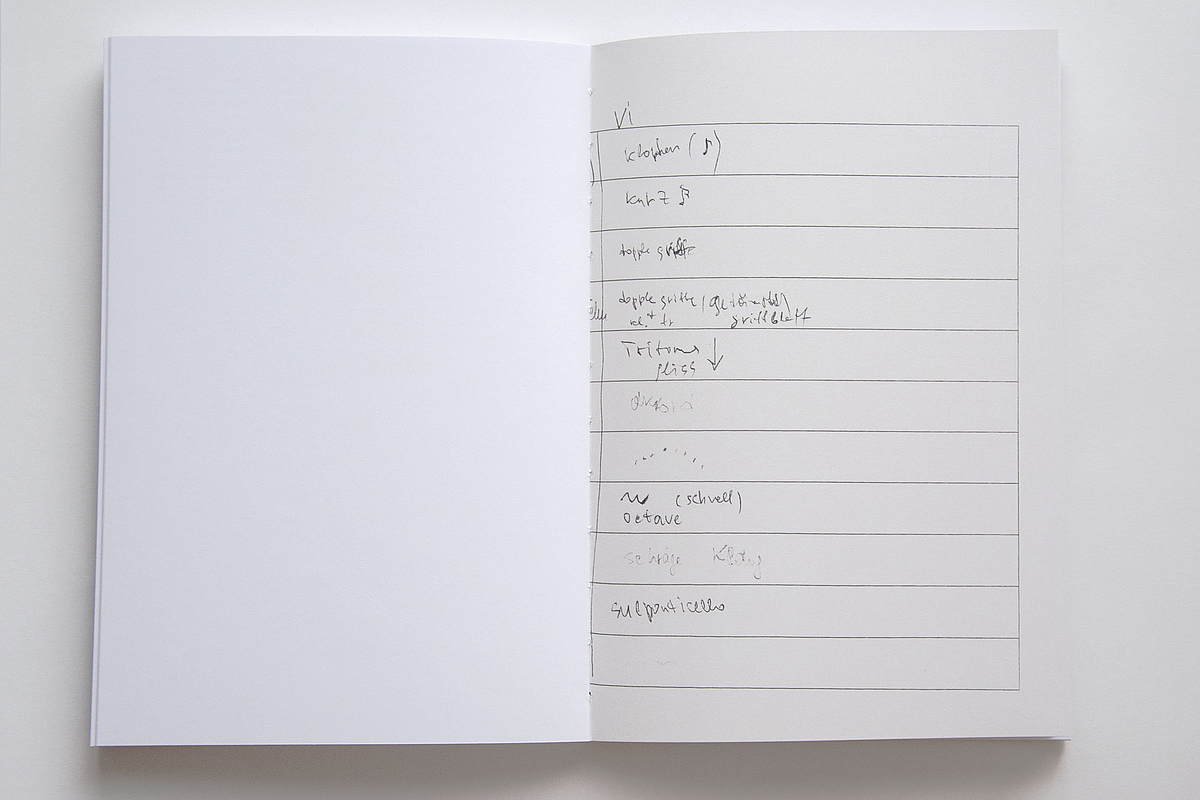 Vi
klopfen (♪)
kurz
dopple griffe
dopple griffe
griffblatt
Tritonus ↓
gliss
(schnell)
octave
schräge Klang
sulponticello